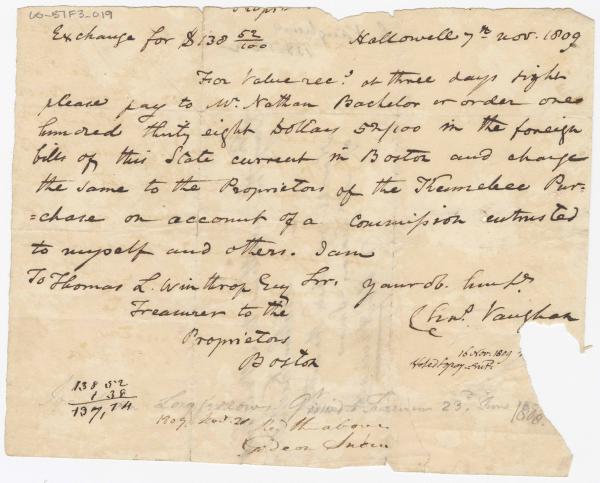 LO-57F3-019
Exchange for $ 138 52/100 Hallowell 7th Nov. 1809
For Value recd. at three days sight
please pay to Mr. Nathan Bachelor or order one
hundred thirty eight Dollars 52/100 in the foreign
bills of this State current in Boston and charge
the same to the Proprietors of the Kennebec Pur-
=chase on account of a commission entrusted
to myself and others. I am
To Thomas L. Winthrop Esq Sir, your ob. Servt.
Treasurer to the Chas. Vaughan
Proprietors
Boston
16 Nov. 1809
138 52
1 38
137,14
23d June 1808
1809 Nov. 20 above